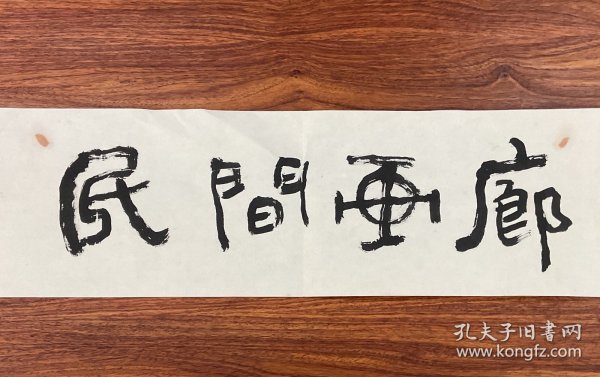 民間画廊
孔夫子旧書网
www.kongfz.com